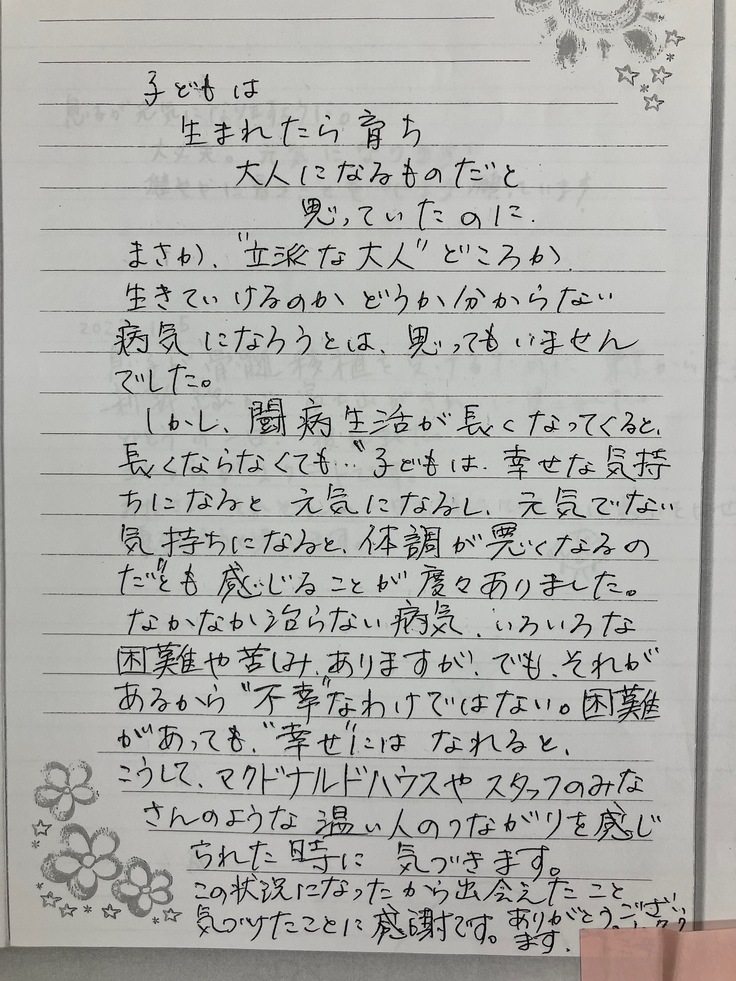 子どもは
生まれたら育ち
大人になるものだと
思っていたのに.
まさか、"立派な大人"どころか、
生きていけるのかどうか分からない
病気になろうとは、思ってもいません
でした。
しかし、闘病生活が長くなってくると、
長くならなくても…"子どもは、幸せな気持
ちになると元気になるし、元気でない
気持ちになると、体調が悪くなるの
だ"とも感じることが、度々ありました。
なかなか治らない病気、いろいろな
困難や苦しみ、ありますが、でも、それが
あるから"不幸"なわけではない。困難
があっても、"幸せ"にはなれると、
こうして、マクドナルドハウスやスタッフのみな
さんのような温い人のつながりを感じ
られた時に気づきます。
この状況になったから出会えたこと
気づけたことに感謝です。ありがとうござい
ます.